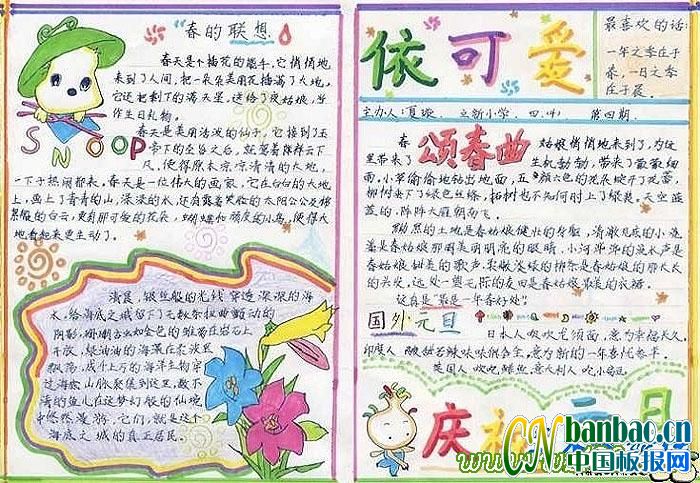 "春的联想
春天是个插花的能手,它悄悄地
来到了人间,把一朵朵美丽花插满了大地,
它还把剩下的满天星,送给了夜姑娘,当
作生日礼物。
SNOOP
春天是美丽活泼的仙子,它接到了玉
帝下的圣旨之后,就驾着祥云下
凡,使得原本凉凉清清的大地,
一下子热闹起来。春天是一位伟大的画家,它在白白的大地
上,画上了青青的山,深深的水,还有露着笑脸的太阳公公及棉
絮般的白云,更有那可爱的花朵,蝴蝶和顽皮的小鸟,使得大
地看起来更生动了。
清晨,银丝般的光线穿透深深的海
水,给海底之城留下了无数条扭曲颤动的
阴影,珊瑚
开放,绿油油的海藻在
飘荡,成千上万的海洋生物穿
过海底山脉聚集到这里,数不
清的鱼儿在这梦幻般的仙境
中悠然漫游,它们,就是这个
海底之城的真正居民。
依可爱
最喜欢的话:
一年之季在于
春,一日之季
在于晨。
主办人:夏璇 立新小学 四.(4) 第四期.
颂春曲
春姑娘悄悄地来到了,为这
里带来了生机勃勃,带来了蒙蒙细
雨。小草偷偷地钻出地面,五颜六色的花朵绽开了花蕾,
柳树垂下了绿色丝绦,柘树也不知何时上了绿装。天空蓝
蓝的,阵阵大雁朝南飞。
黝黑的土地是春姑娘健壮的身躯,清澈见底的小溪
是春姑娘那明亮的眼睛,小河哗哗的流水声
是春姑娘甜美的歌声,柔嫩浅绿的柳条是春姑娘的那长长
的头发,这处一望无际的农田是春姑娘最美的衣裙。
这真是"最是一年春好处"
国外元旦
日本人吃吃龙须面,意为幸福长久。
印度人 酸甜苦辣味味俱全,意为新的一年喜忧参半。
英国人 吃吃鲜鱼 意大利人 吃小扁豆
庆祝元旦
CN banbao.cn
中国板报网